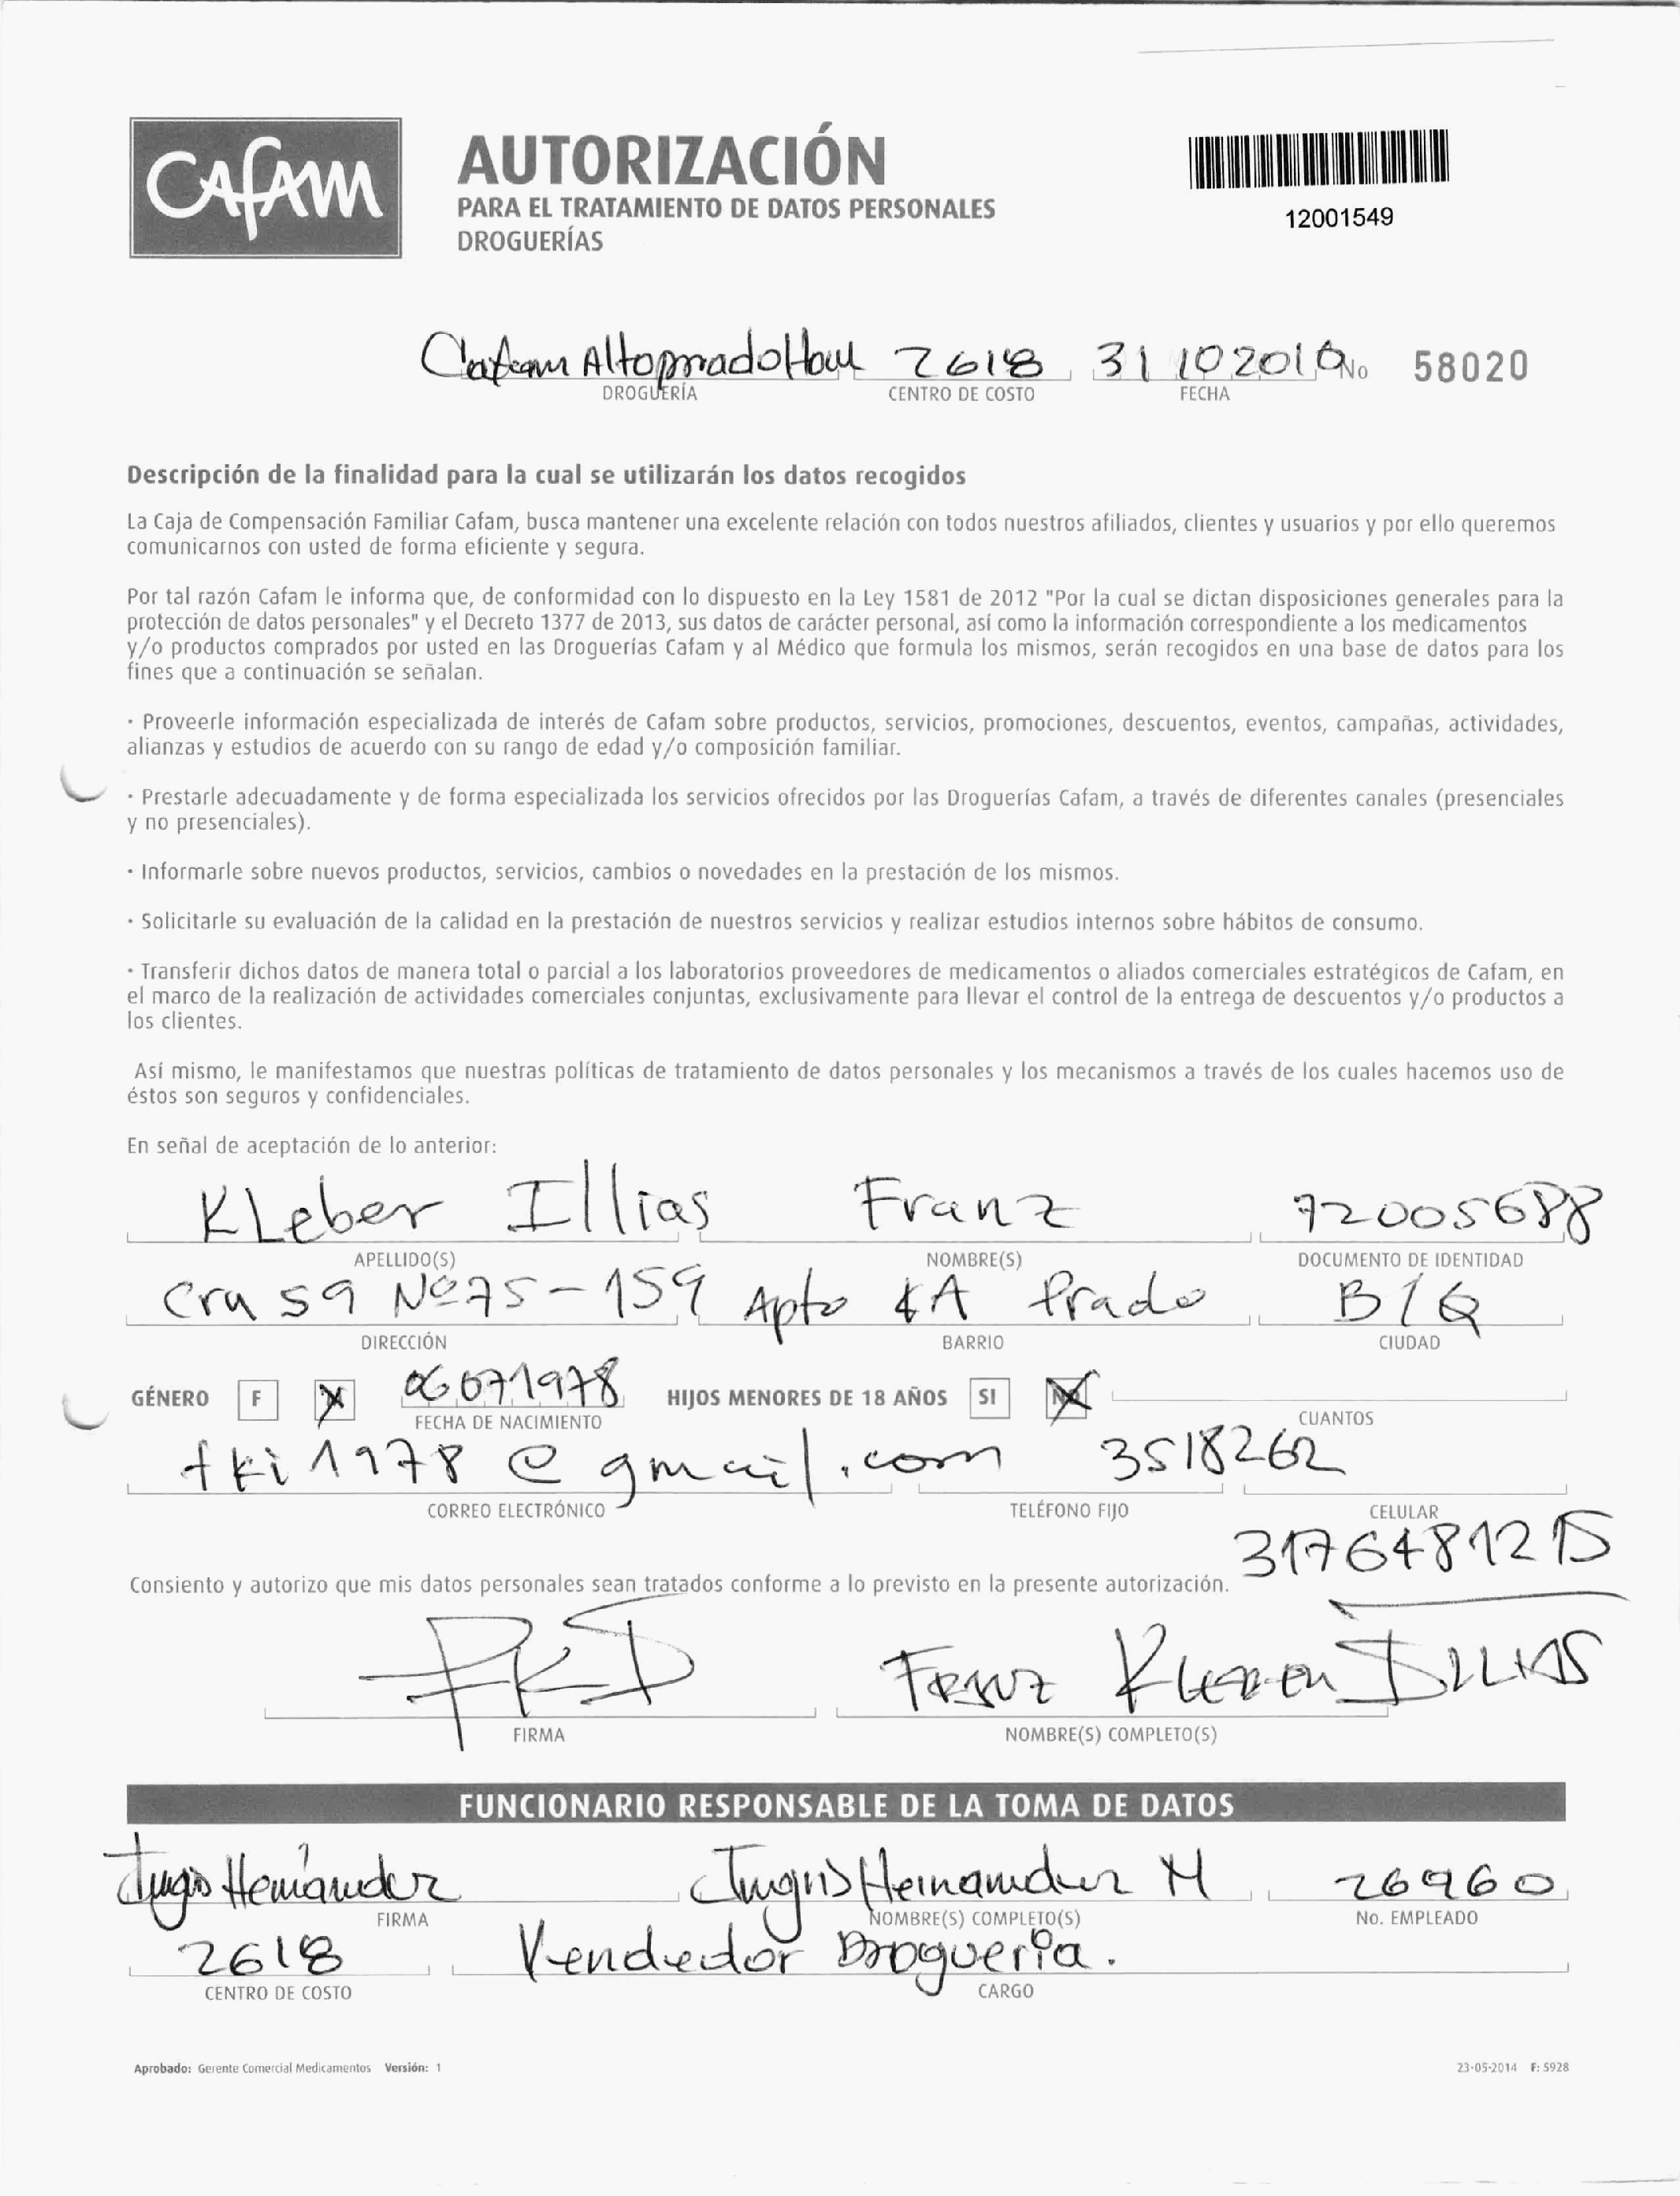 CAFAM
AUTORIZACIÓN
PARA EL TRATAMIENTO DE DATOS PERSONALES
DROGUERÍAS
12001549
Cafam Altoprado 2618 31 10 201 No 58020
DROGUERÍA CENTRO DE COSTO FECHA
Descripción de la finalidad para la cual se utilizarán los datos recogidos
La Caja de Compensación Familiar Cafam, busca mantener una excelente relación con todos nuestros afiliados, clientes y usuarios y por ello queremos
comunicarnos con usted de forma eficiente y segura.
Por tal razón Cafam le informa que, de conformidad con lo dispuesto en la Ley 1581 de 2012 "Por la cual se dictan disposiciones generales para la
protección de datos personales" y el Decreto 1377 de 2013, sus datos de carácter personal, así como la información correspondiente a los medicamentos
y/o productos comprados por usted en las Droguerías Cafam y al Médico que formula los mismos, serán recogidos en una base de datos para los
fines que a continuación se señalan.
· Proveerle información especializada de interés de Cafam sobre productos, servicios, promociones, descuentos, eventos, campañas, actividades,
alianzas y estudios de acuerdo con su rango de edad y/o composición familiar.
· Prestarle adecuadamente y de forma especializada los servicios ofrecidos por las Droguerías Cafam, a través de diferentes canales (presenciales
y no presenciales).
· Informarle sobre nuevos productos, servicios, cambios o novedades en la prestación de los mismos.
· Solicitarle su evaluación de la calidad en la prestación de nuestros servicios y realizar estudios internos sobre hábitos de consumo.
· Transferir dichos datos de manera total o parcial a los laboratorios proveedores de medicamentos o aliados comerciales estratégicos de Cafam, en
el marco de la realización de actividades comerciales conjuntas, exclusivamente para llevar el control de la entrega de descuentos y/o productos a
los clientes.
Así mismo, le manifestamos que nuestras políticas de tratamiento de datos personales y los mecanismos a través de los cuales hacemos uso de
éstos son seguros y confidenciales.
En señal de aceptación de lo anterior:
KLeber Illias Franz 72005688
APELLIDO(S) NOMBRE(S) DOCUMENTO DE IDENTIDAD
Cra 59 Nº 75-159 Apto Prado B/Q
DIRECCIÓN BARRIO CIUDAD
GÉNERO F X 06071978 HIJOS MENORES DE 18 AÑOS SI NO
FECHA DE NACIMIENTO CUANTOS
fki1978@gmail.com 3518262
CORREO ELECTRÓNICO TELÉFONO FIJO CELULAR
3176481215
Consiento y autorizo que mis datos personales sean tratados conforme a lo previsto en la presente autorización.
FKI Franz Kleber Illias
FIRMA NOMBRE(S) COMPLETO(S)
FUNCIONARIO RESPONSABLE DE LA TOMA DE DATOS
Hernandez Hernandez M 26960
FIRMA NOMBRE(S) COMPLETO(S) No. EMPLEADO
2618 Vendedor Drogueria.
CENTRO DE COSTO CARGO
Aprobado: Gerente Comercial Medicamentos Versión: 1 23-05-2014 F: 5928